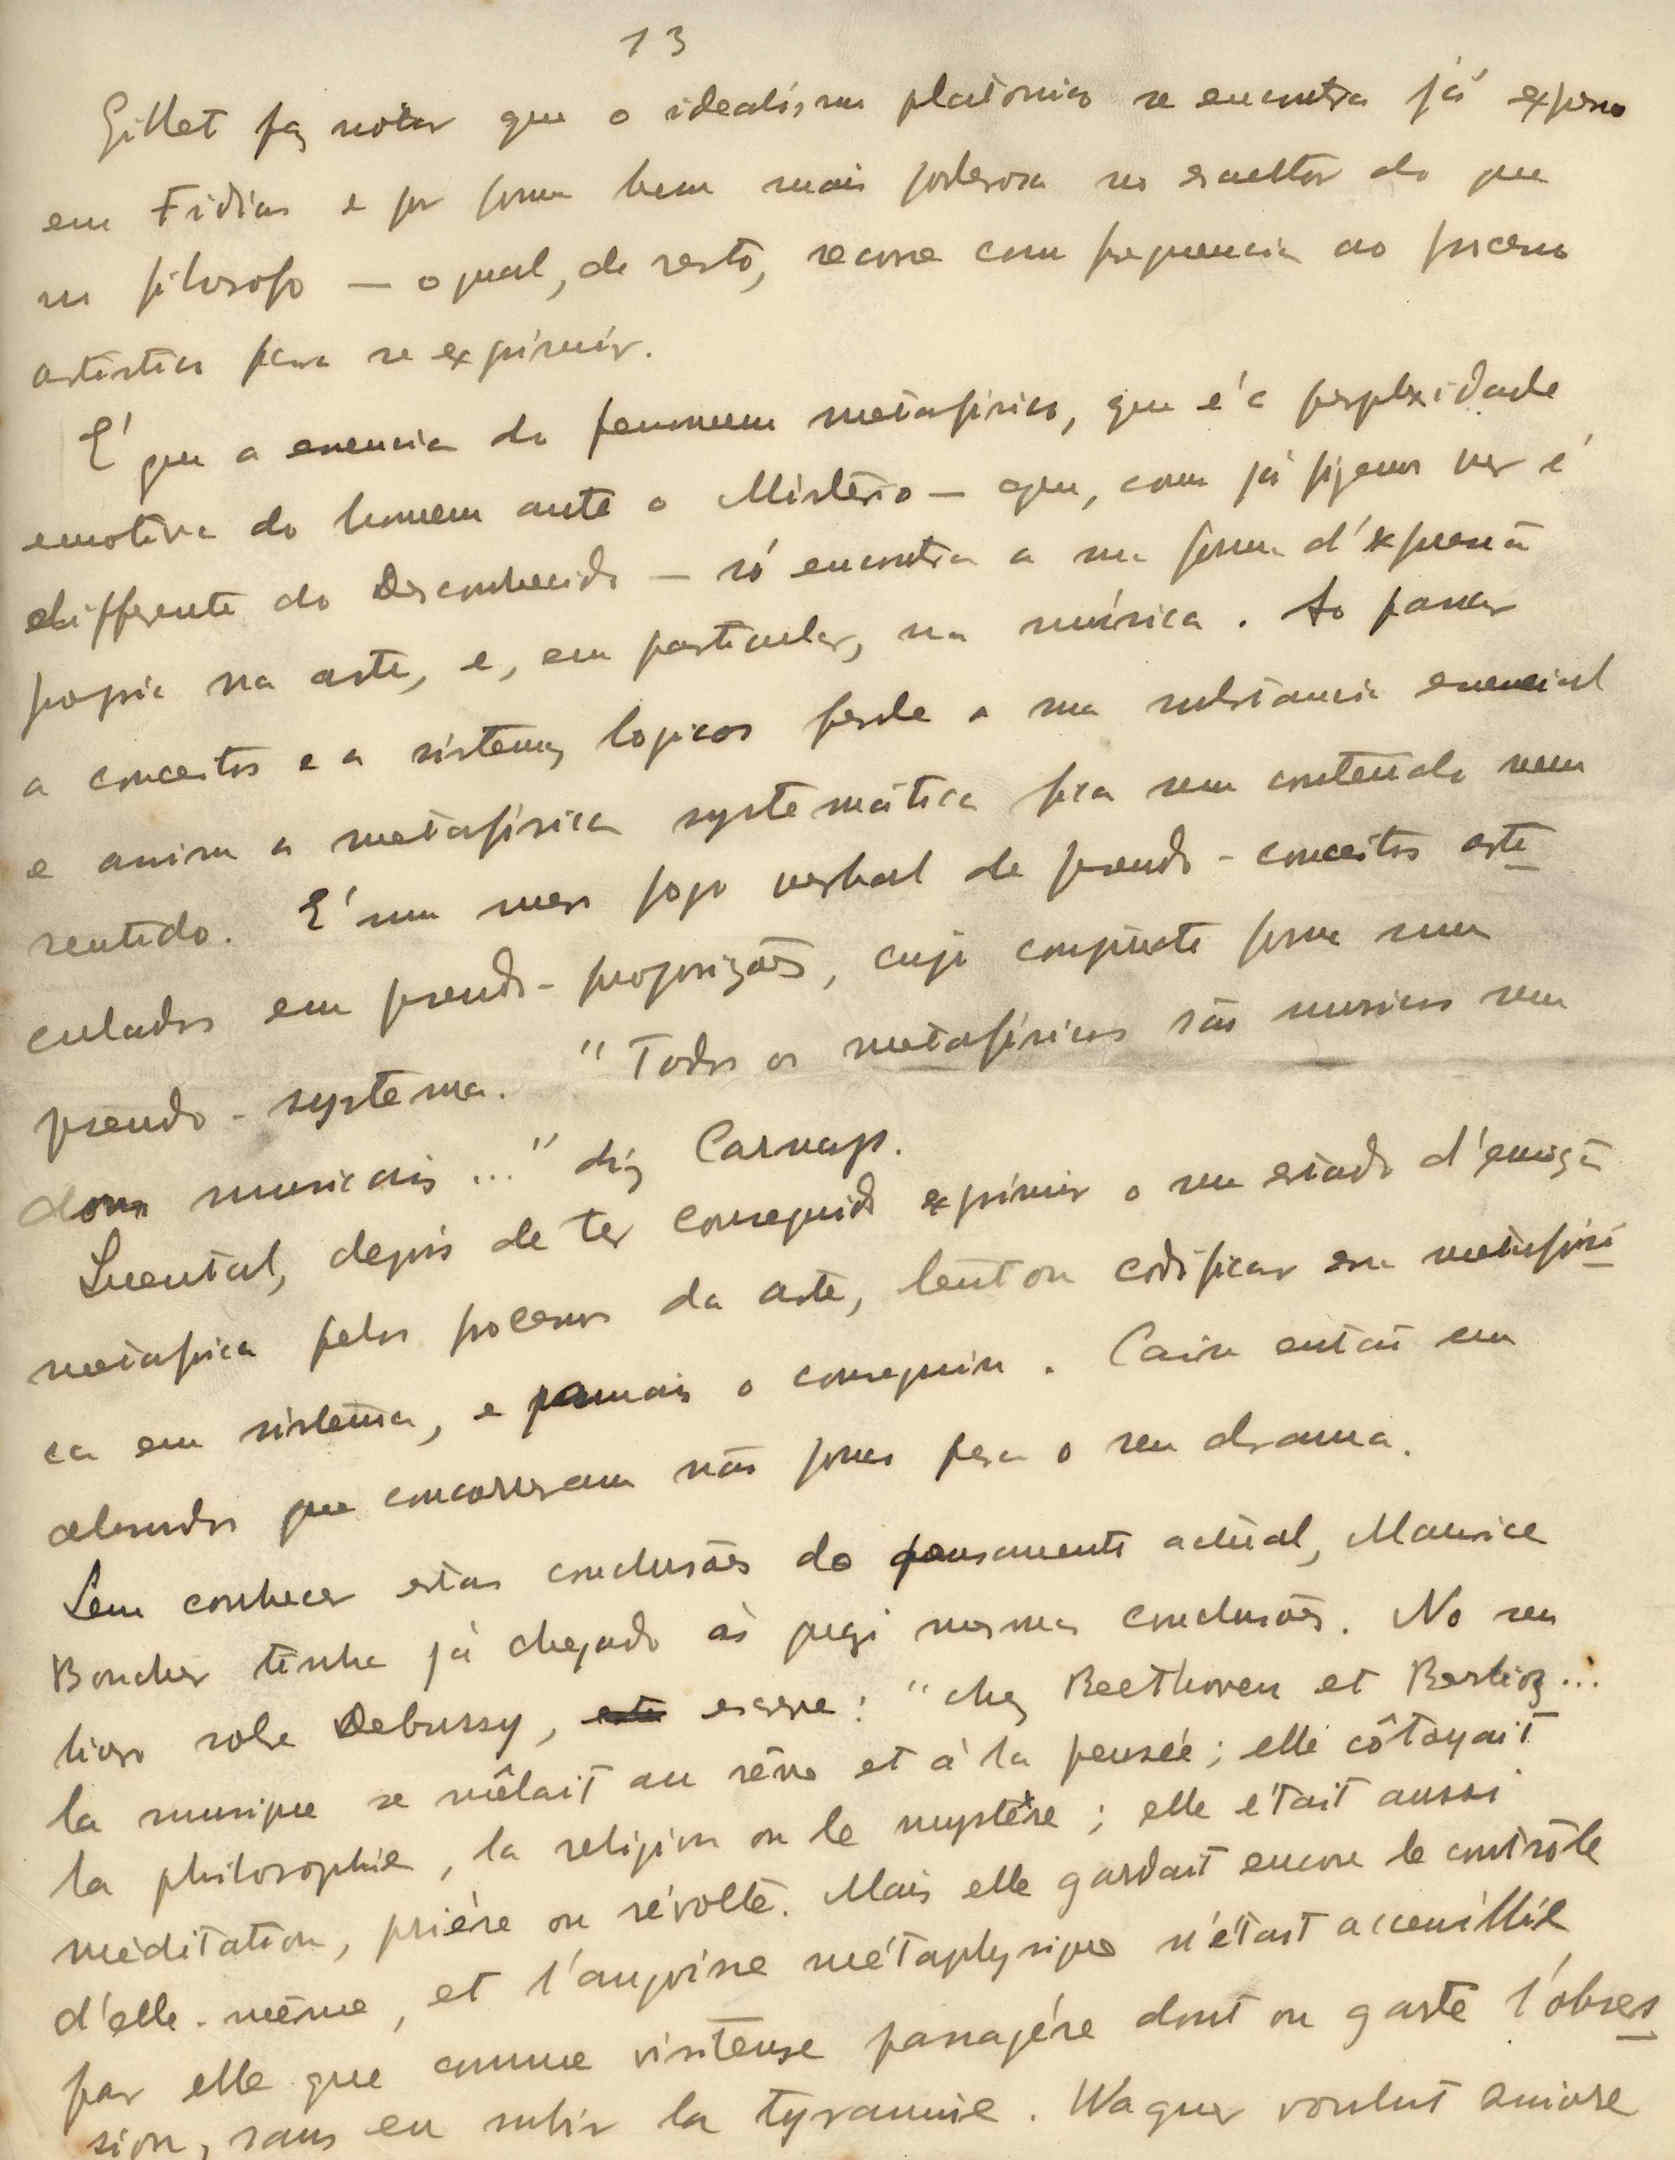 13
Gillet faz notar que o idealismo platonico se encontra já expresso
em Fidias e por forma bem mais poderosa no escultor do que
no filosofo — o qual, de resto, recorre com frequencia ao processo
artistico para se exprimir.
E' que a essencia do fenomeno metafisico, que é a perplexidade
emotiva do homem ante o Mistério — que, como já fizemos ver é
differente do Desconhecido — só encontra a sua forma d'expressão
propria na arte, e, em particular, na música. Ao passar
a conceitos e a sistemas logicos perde a sua substancia essencial
e assim a metafísica systemática fica sem conteúdo nem
sentido. E' um mero jogo verbal de pseudo-conceitos arti
culados em pseudo-proposições, cujo conjuncto forma um
pseudo-systema. "Todos os metafísicos são musicos sem
dons musicais..." diz Carnap.
Quental, depois de ter conseguido exprimir o seu estado d'emoção
metafisica pelos processos da arte, tentou codificar essa metafísi
ca em sistema, e jamais o conseguiu. Caiu então em
absurdos que concorreram não pouco para o seu drama.
Sem conhecer estas conclusões do pensamento actual, Maurice
Boucher tinha já chegado ás quasi mesmas conclusões. No seu
livro sobre Debussy, escreve: "chez Beethoven et Berlioz...
la musique se mêlait au rêve et à la pensée; elle côtoyait
la philosophie, la religion ou le mystère; elle était aussi
méditation, prière ou révolte. Mais elle gardait encore le contrôle
d'elle-même, et l'angoisse métaphysique n'était accueillie
par elle que comme visiteuse passagère dont on garde l'obses
sion, sans en subir la tyrannie. Wagner voulut encore